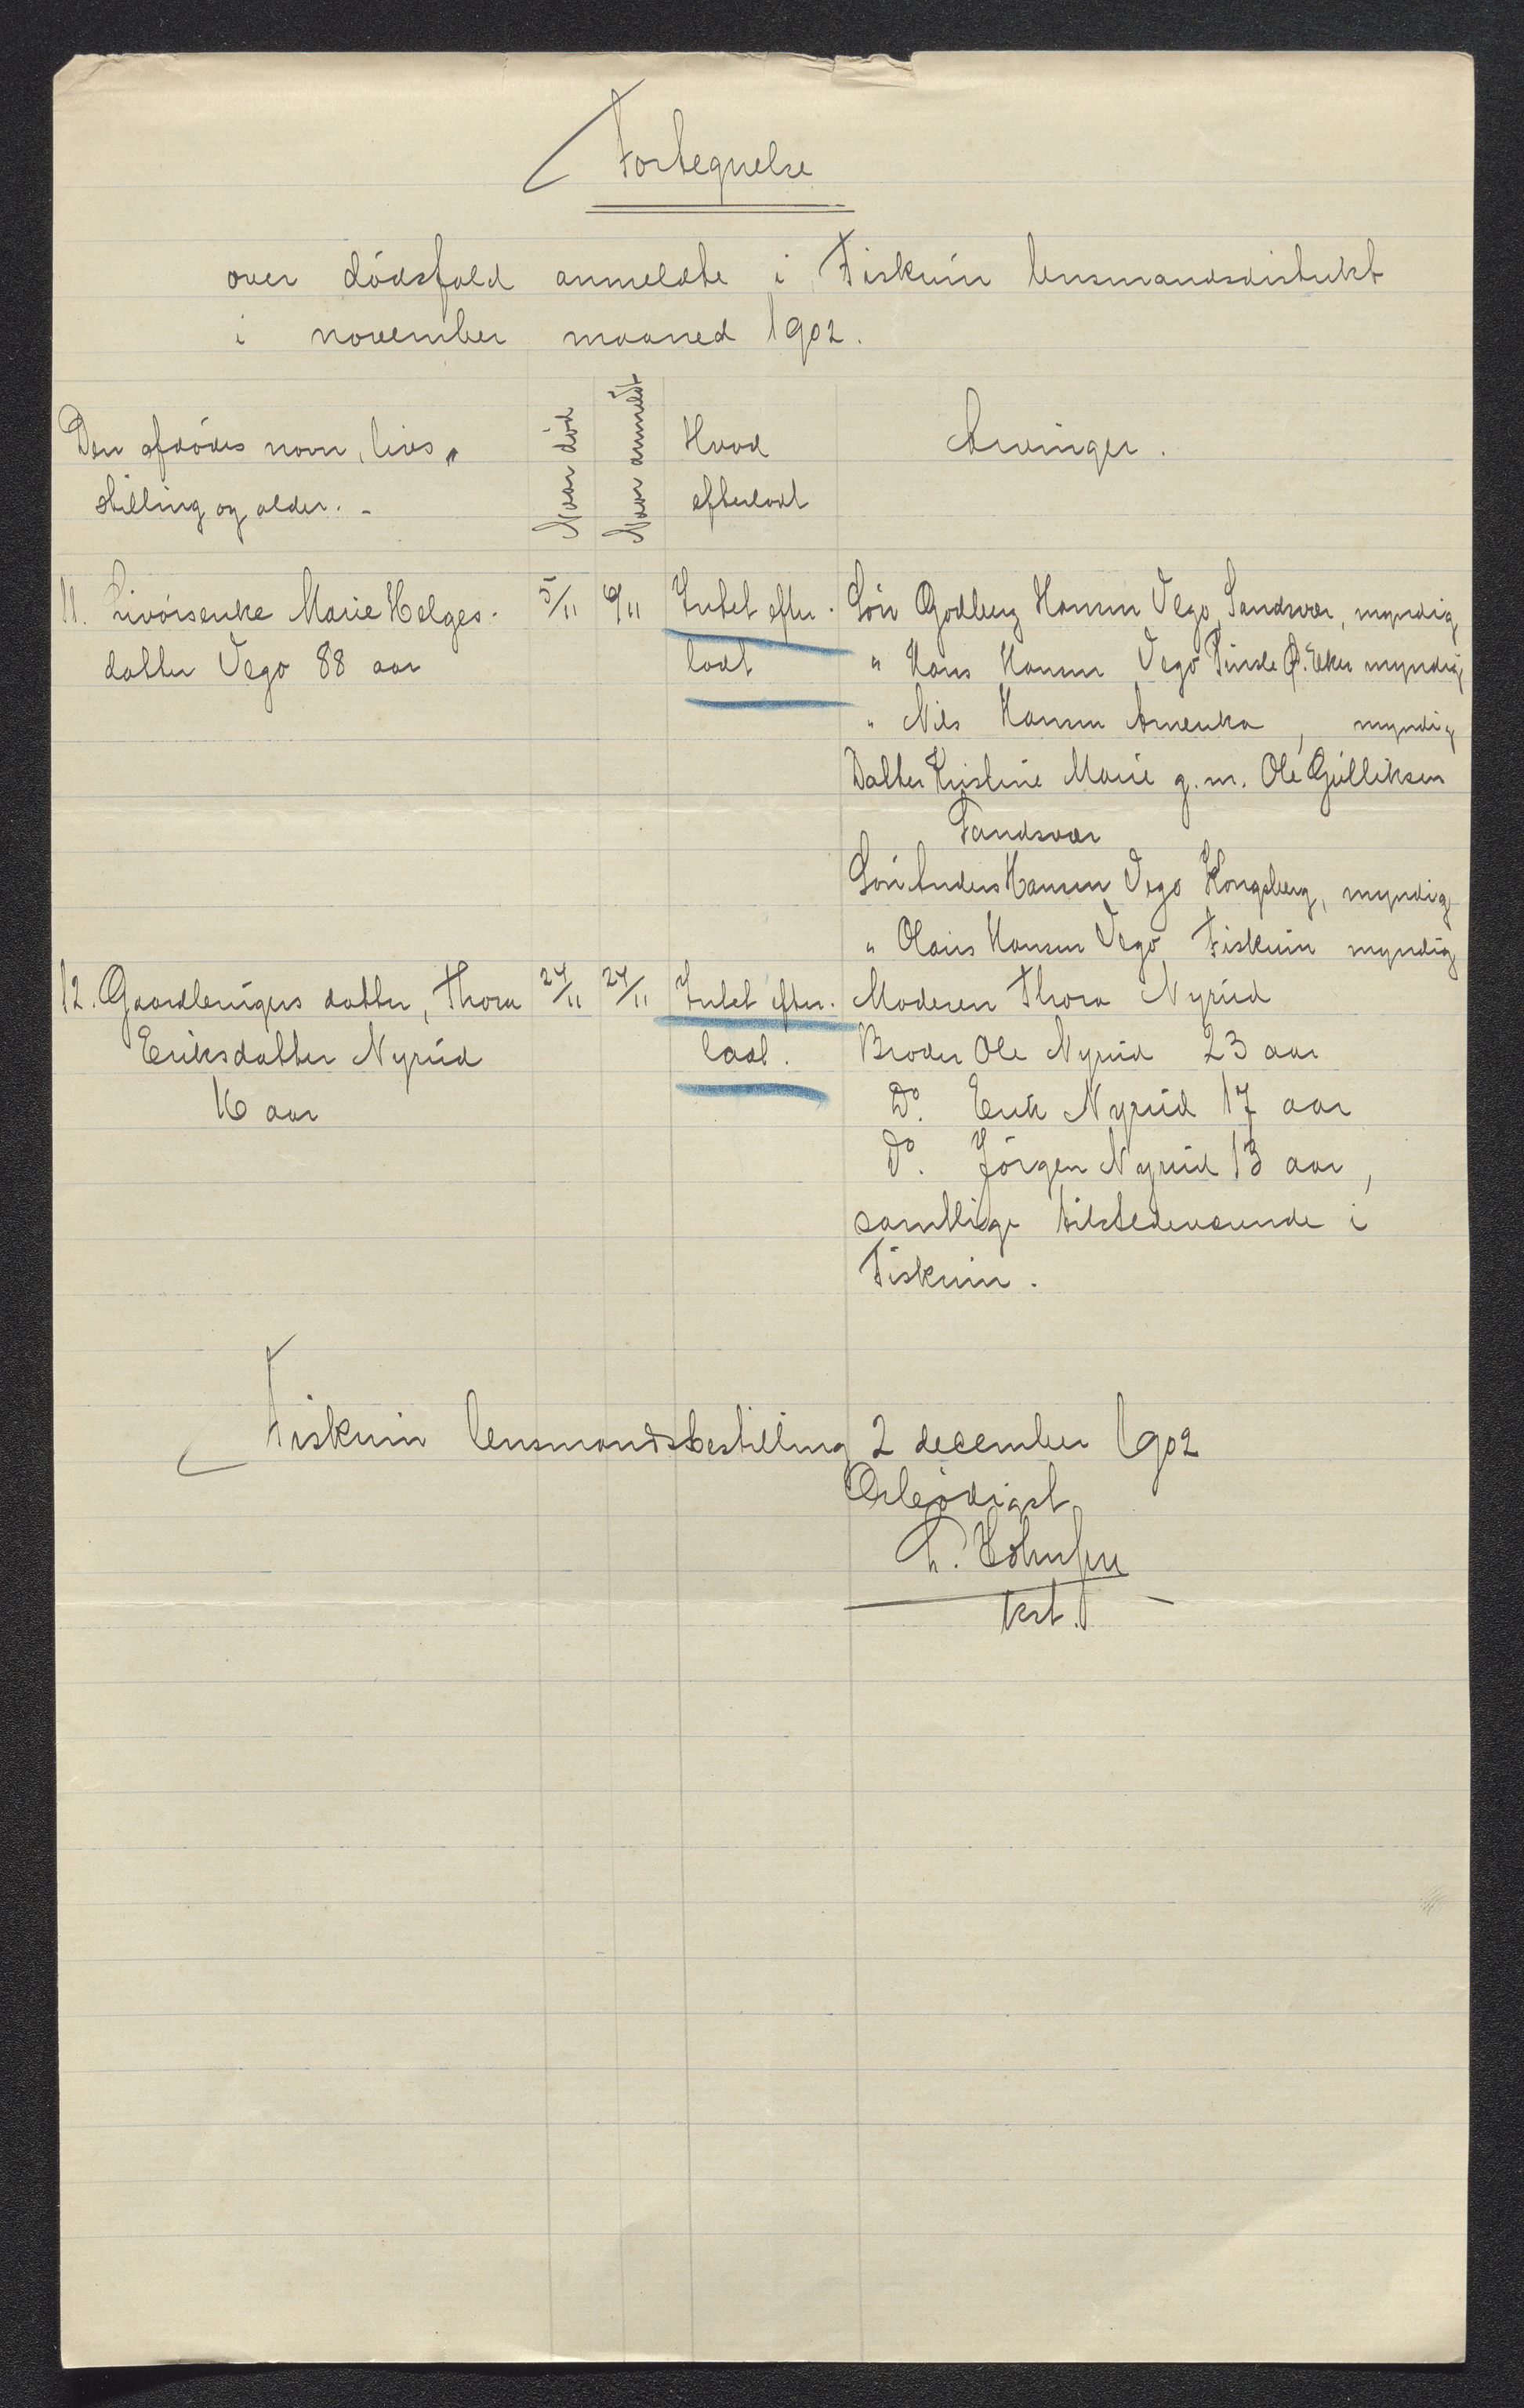 Fortegnelse
over dödsfald anmeldte i Fiskum lensmandsdistrikt
i november maaned 1902.
Den afdödes navn, livs„
stilling og alder. -
Naar död
Naar anmeldt
Hvad
efterladt
Arvinger.
11. Livörsenke Marie Helges-
datter Vego 88 aar
5/11 6/11 Intet efter-
ladt
Sön Godberg Hansen Vego, Sandsvær, myndig
" Hans Hansen Vego Ø. Eker myndig
" Nils Hansen Amerika, myndig
Datter Kristine Marie g. m. Ole Gulliksen
Sandsvær
Sön Anders Hansen Vego Kongsberg, myndig
" Olaus Hansen Vego Fiskum myndig
12. Gaardbrugers datter, Thora
Eriksdatter Nyrud
16 aar
24/11 24/11 Intet efter-
ladt.
Moderen Thora Nyrud
Broder Ole Nyrud 23 aar
Do. Erik Nyrud 17 aar
Do. Jörgen Nyrud 13 aar,
samtlige tilstedeværende i
Fiskum.
Fiskum lensmandsbestilling 2 december 1902
Ærbödigst
kst.